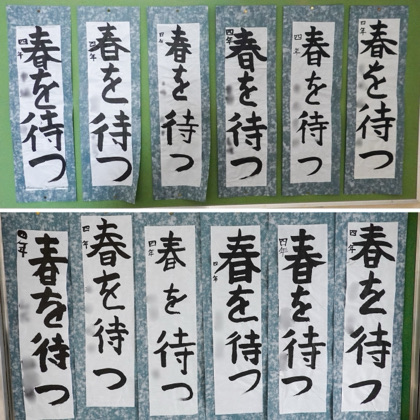 四年 春を待つ
四年 春を待つ
四年 春を待つ
四年 春を待つ
四年 春を待つ
四年 春を待つ
四年 春を待つ
四年 春を待つ
四年 春を待つ
四年 春を待つ
四年 春を待つ
四年 春を待つ